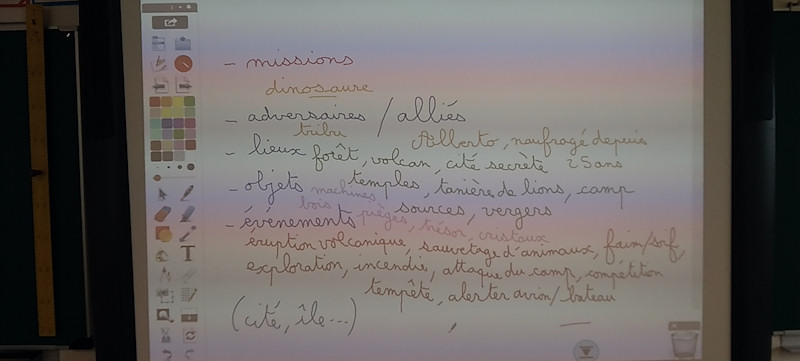 - missions
dinosaure
- adversaires / alliés
tribu Alberto, naufragé depuis
- lieux forêt, volcan, cité secrète 25 ans
temples, tanière de lions, camp
- objets machines, sources, vergers
bois, pièges, trésor, cristaux
- événements
éruption volcanique, sauvetage d'animaux, faim/soif,
exploration, incendie, attaque du camp, compétition
tempête, alerter avion/bateau
(cité, île...)
T